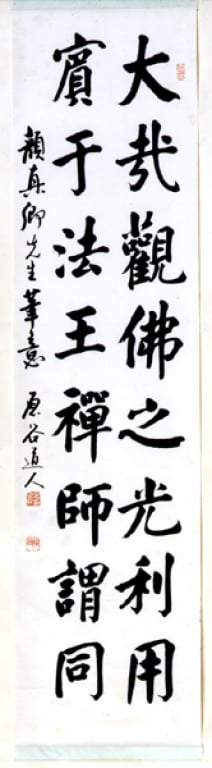 大哉觀佛之光利用
賓于法王禪師謂同
顏真卿先生筆意 原谷道人